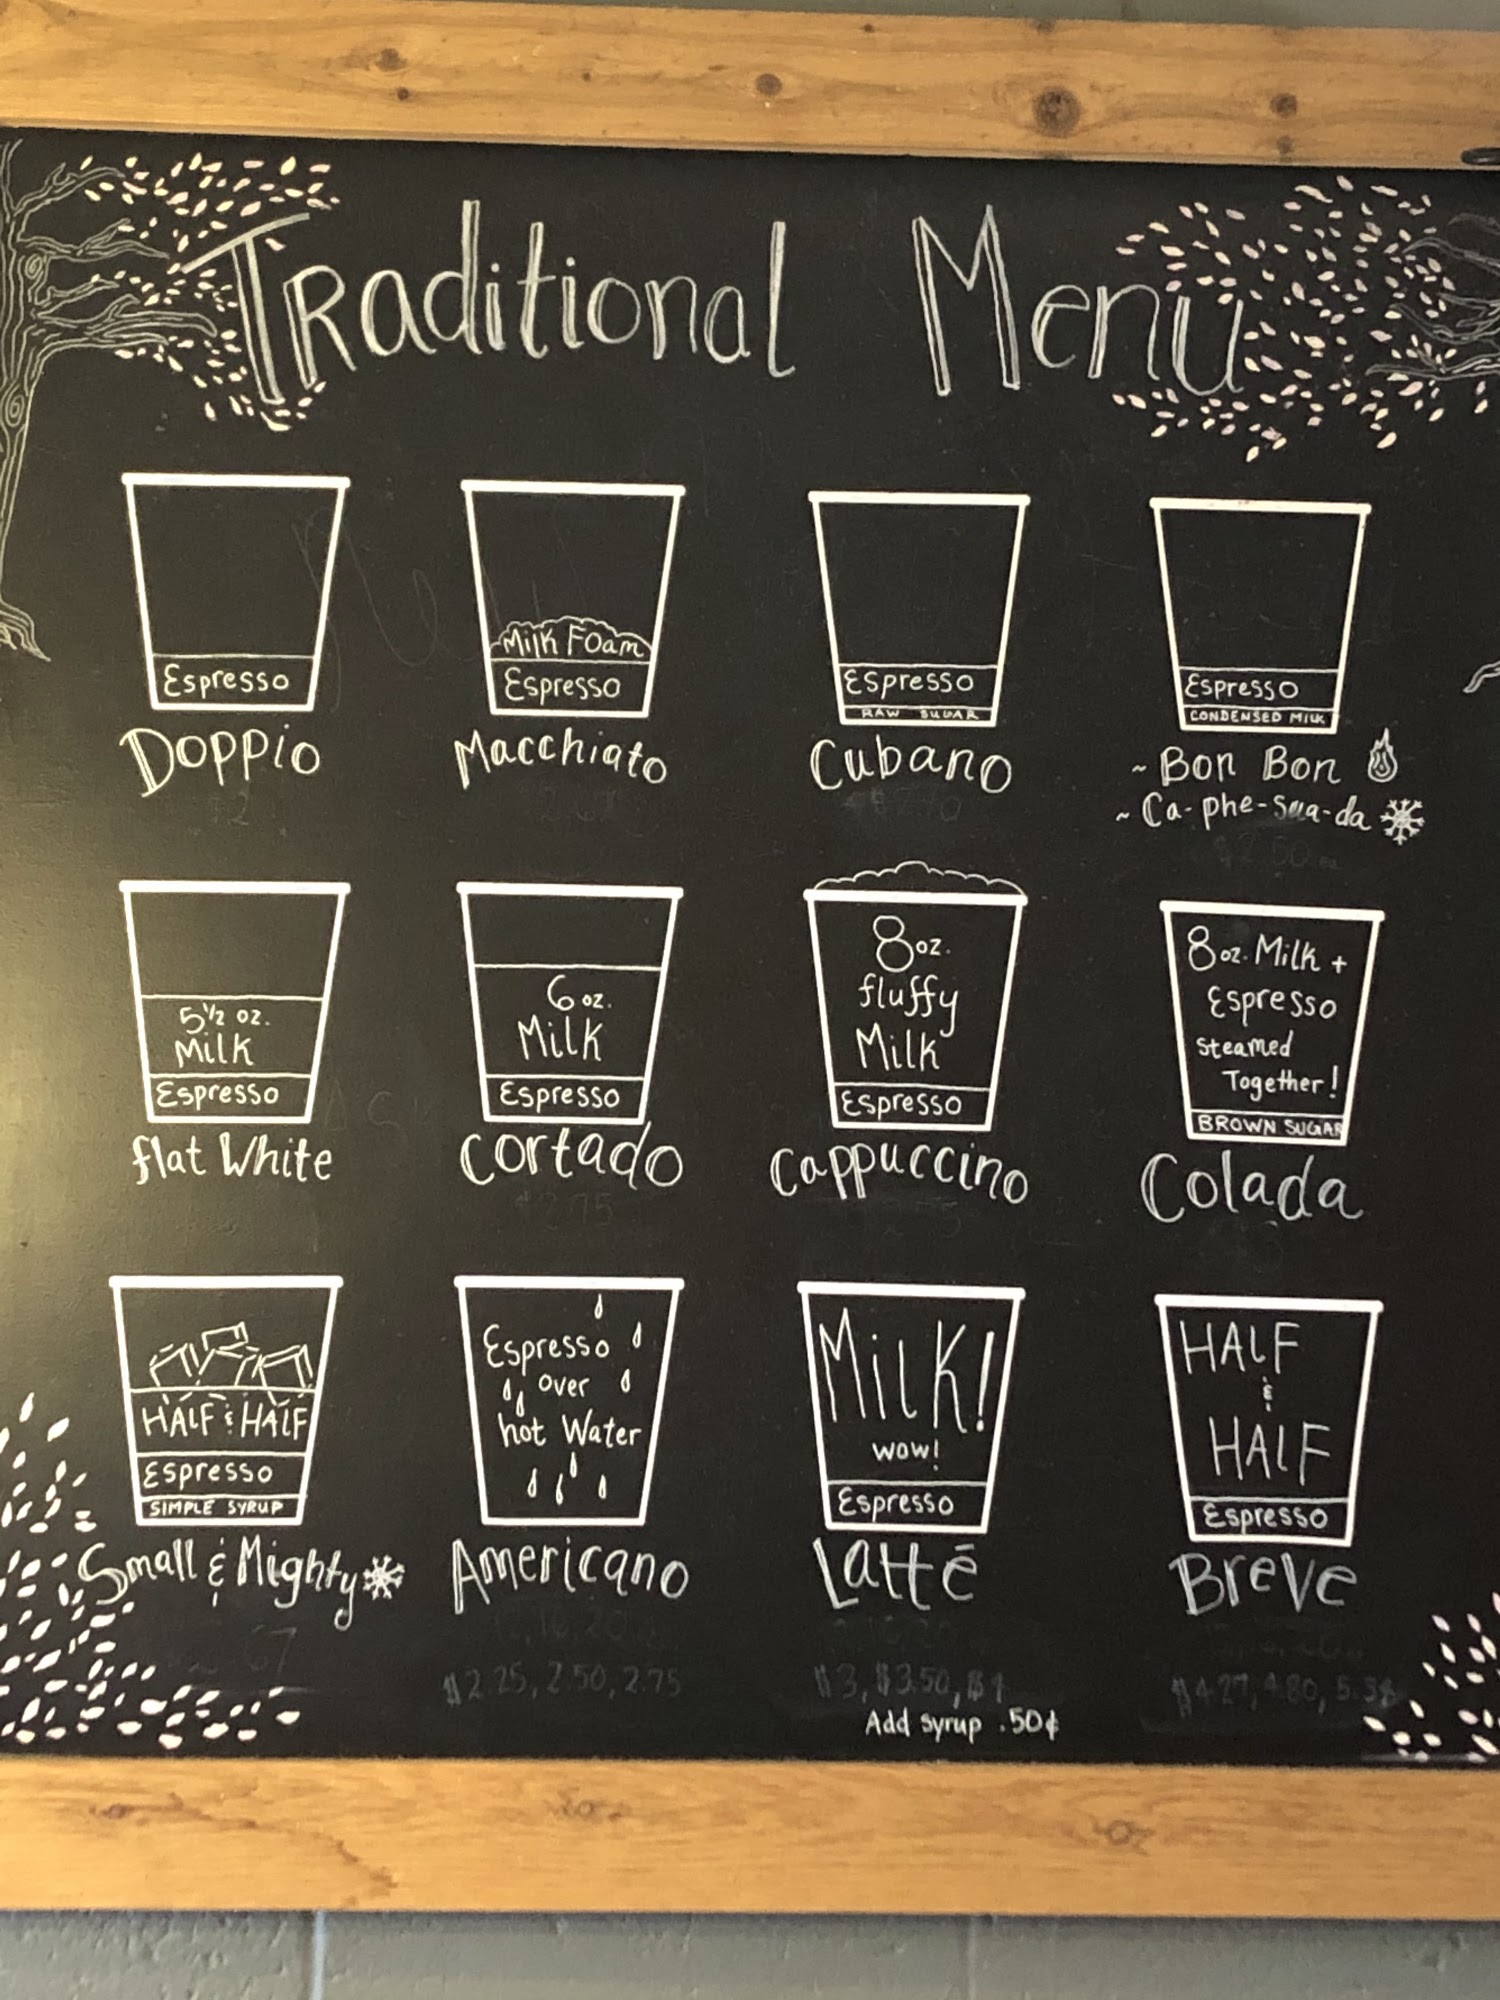 Traditional Menu
Espresso
Doppio
$2
Milk Foam
Espresso
Macchiato
Espresso
RAW SUGAR
Cubano
Espresso
CONDENSED MILK
~ Bon Bon
~ Ca-phe-sua-da
$2.50 ea
5 1/2 oz.
Milk
Espresso
flat White
6 oz.
Milk
Espresso
Cortado
$2.75
8 oz.
fluffy
Milk
Espresso
Cappuccino
8 oz. Milk +
Espresso
steamed
Together!
BROWN SUGAR
Colada
HALF & HALF
Espresso
SIMPLE SYRUP
Small & Mighty
Espresso
over
hot Water
Americano
$2.25, 2.50, 2.75
Milk!
wow!
Espresso
Latté
$3, $3.50, $4
Add syrup .50¢
HALF
&
HALF
Espresso
Breve